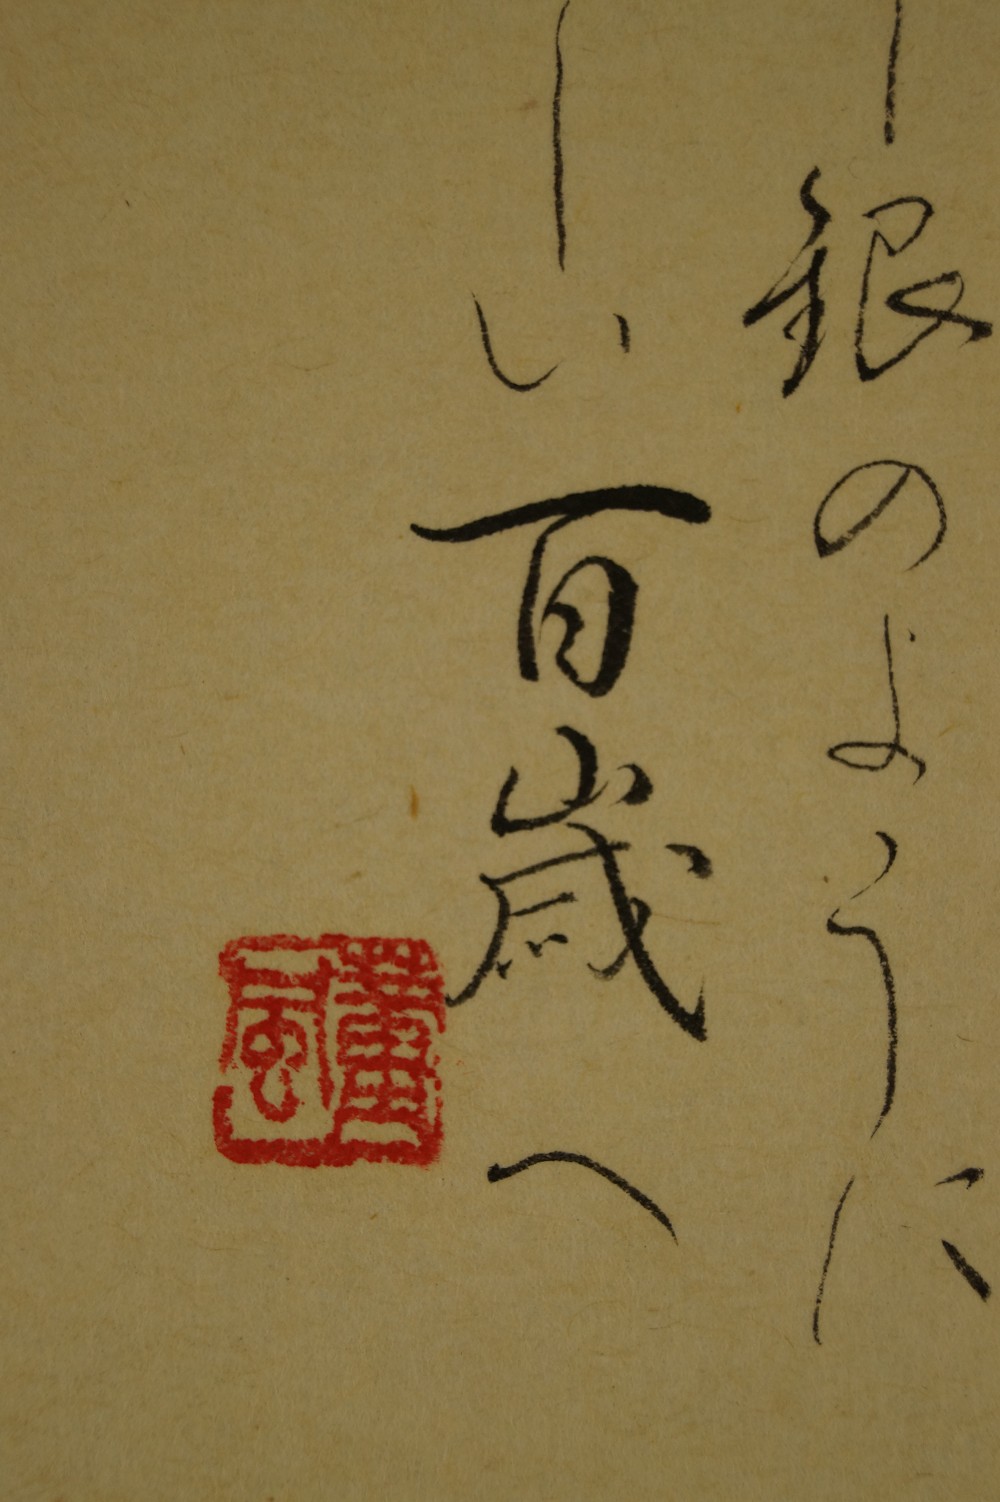 し銀のように
しい百歳へ
薫風